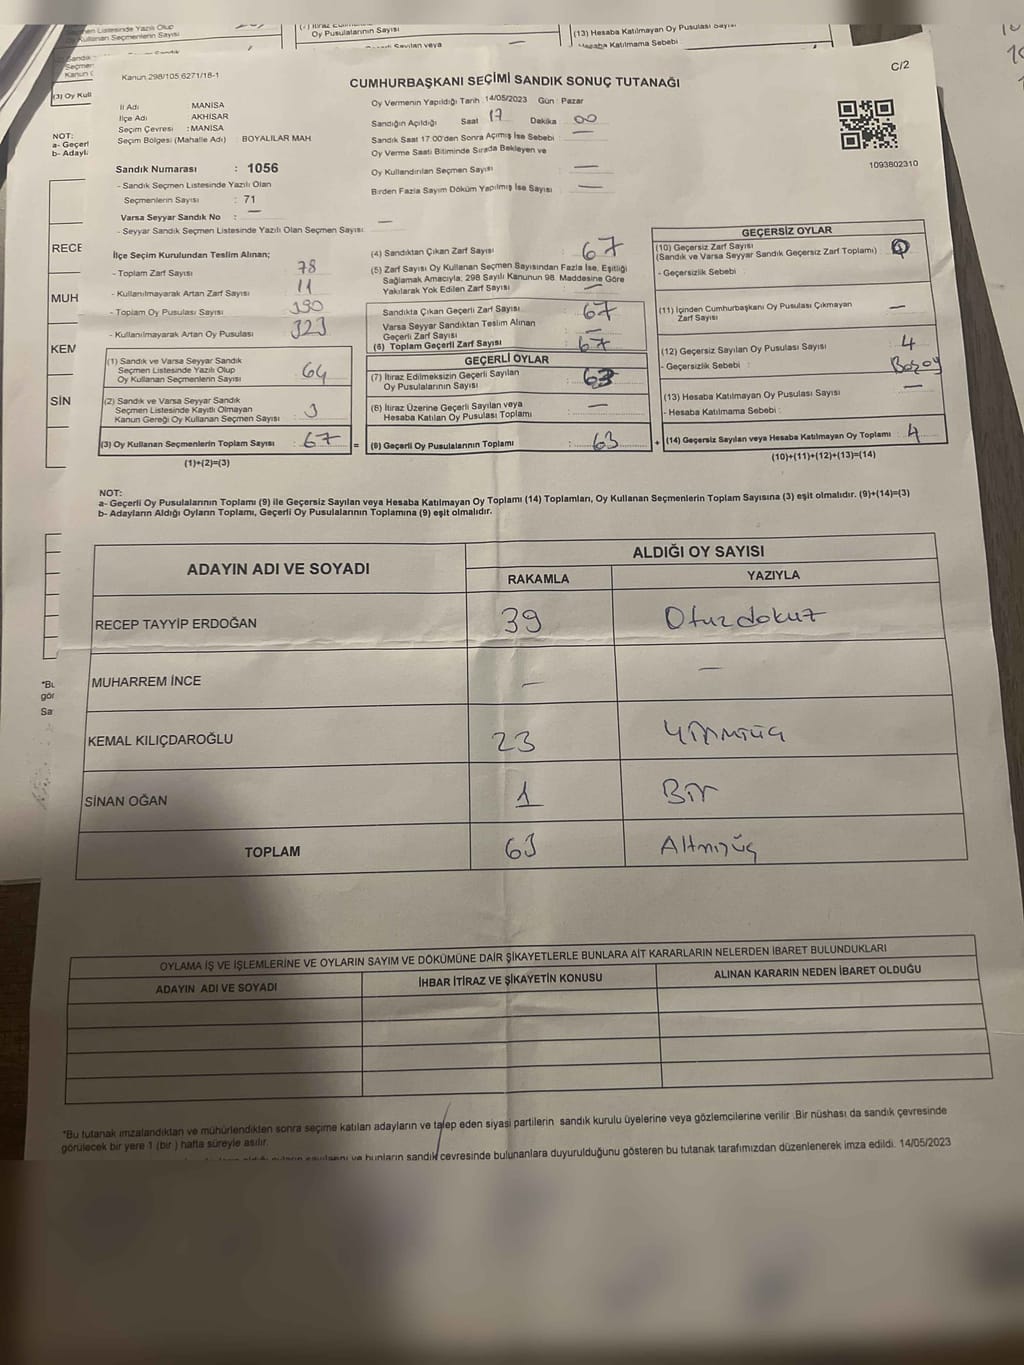 Kanun 298/105 6271/18-1
C/2
CUMHURBAŞKANI SEÇİMİ SANDIK SONUÇ TUTANAĞI
İl Adı : MANİSA
İlçe Adı : AKHİSAR
Seçim Çevresi : MANİSA
Seçim Bölgesi (Mahalle Adı) BOYALILAR MAH
Sandık Numarası : 1056
- Sandık Seçmen Listesinde Yazılı Olan
Seçmenlerin Sayısı : 71
Varsa Seyyar Sandık No : —
- Seyyar Sandık Seçmen Listesinde Yazılı Olan Seçmen Sayısı : —
Oy Vermenin Yapıldığı Tarih : 14/05/2023 Gün : Pazar
Sandığın Açıldığı Saat 17 Dakika 00
Sandık Saat 17 00'den Sonra Açımış İse Sebebi —
Oy Verme Saati Bitiminde Sırada Bekleyen ve
Oy Kullandırılan Seçmen Sayısı —
Birden Fazla Sayım Döküm Yapılmış İse Sayısı —
1093802310
İlçe Seçim Kurulundan Teslim Alınan;
- Toplam Zarf Sayısı 78
- Kullanılmayarak Artan Zarf Sayısı : 11
- Toplam Oy Pusulası Sayısı : 390
- Kullanılmayarak Artan Oy Pusulası : 323
(1) Sandık ve Varsa Seyyar Sandık
Seçmen Listesinde Yazılı Olup
Oy Kullanan Seçmenlerin Sayısı : 64
(2) Sandık ve Varsa Seyyar Sandık
Seçmen Listesinde Kayıtlı Olmayan
Kanun Gereği Oy Kullanan Seçmen Sayısı : 3
(3) Oy Kullanan Seçmenlerin Toplam Sayısı : 67
(1)+(2)=(3)
(4) Sandıktan Çıkan Zarf Sayısı : 67
(5) Zarf Sayısı Oy Kullanan Seçmen Sayısından Fazla İse, Eşitliği
Sağlamak Amacıyla; 298 Sayılı Kanunun 98. Maddesine Göre
Yakılarak Yok Edilen Zarf Sayısı : —
Sandıkta Çıkan Geçerli Zarf Sayısı : 67
Varsa Seyyar Sandıktan Teslim Alınan
Geçerli Zarf Sayısı : —
(6) Toplam Geçerli Zarf Sayısı : 67
GEÇERLİ OYLAR
(7) İtiraz Edilmeksizin Geçerli Sayılan
Oy Pusulalarının Sayısı : 63
(8) İtiraz Üzerine Geçerli Sayılan veya
Hesaba Katılan Oy Pusulası Toplamı : —
= (9) Geçerli Oy Pusulalarının Toplamı : 63
GEÇERSİZ OYLAR
(10) Geçersiz Zarf Sayısı
(Sandık ve Varsa Seyyar Sandık Geçersiz Zarf Toplamı)
- Geçersizlik Sebebi :
(11) İçinden Cumhurbaşkanı Oy Pusulası Çıkmayan
Zarf Sayısı : —
(12) Geçersiz Sayılan Oy Pusulası Sayısı : 4
- Geçersizlik Sebebi :
(13) Hesaba Katılmayan Oy Pusulası Sayısı : —
- Hesaba Katılmama Sebebi :
+ (14) Geçersiz Sayılan veya Hesaba Katılmayan Oy Toplamı : 4
(10)+(11)+(12)+(13)=(14)
NOT:
a- Geçerli Oy Pusulalarının Toplamı (9) ile Geçersiz Sayılan veya Hesaba Katılmayan Oy Toplamı (14) Toplamları, Oy Kullanan Seçmenlerin Toplam Sayısına (3) eşit olmalıdır. (9)+(14)=(3)
b- Adayların Aldığı Oyların Toplamı, Geçerli Oy Pusulalarının Toplamına (9) eşit olmalıdır.
ADAYIN ADI VE SOYADI
ALDIĞI OY SAYISI
RAKAMLA YAZIYLA
RECEP TAYYİP ERDOĞAN 39 Otuzdokuz
MUHARREM İNCE — —
KEMAL KILIÇDAROĞLU 23 Yirmiüç
SİNAN OĞAN 1 Bir
TOPLAM 63 Altmışüç
OYLAMA İŞ VE İŞLEMLERİNE VE OYLARIN SAYIM VE DÖKÜMÜNE DAİR ŞİKAYETLERLE BUNLARA AİT KARARLARIN NELERDEN İBARET BULUNDUKLARI
ADAYIN ADI VE SOYADI İHBAR İTİRAZ VE ŞİKAYETİN KONUSU ALINAN KARARIN NEDEN İBARET OLDUĞU
*Bu tutanak imzalandıktan ve mühürlendikten sonra seçime katılan adayların ve talep eden siyasi partilerin sandık kurulu üyelerine veya gözlemcilerine verilir. Bir nüshası da sandık çevresinde
görülecek bir yere 1 (bir ) hafta süreyle asılır.
ve bunların sandık çevresinde bulunanlara duyurulduğunu gösteren bu tutanak tarafımızdan düzenlenerek imza edildi. 14/05/2023